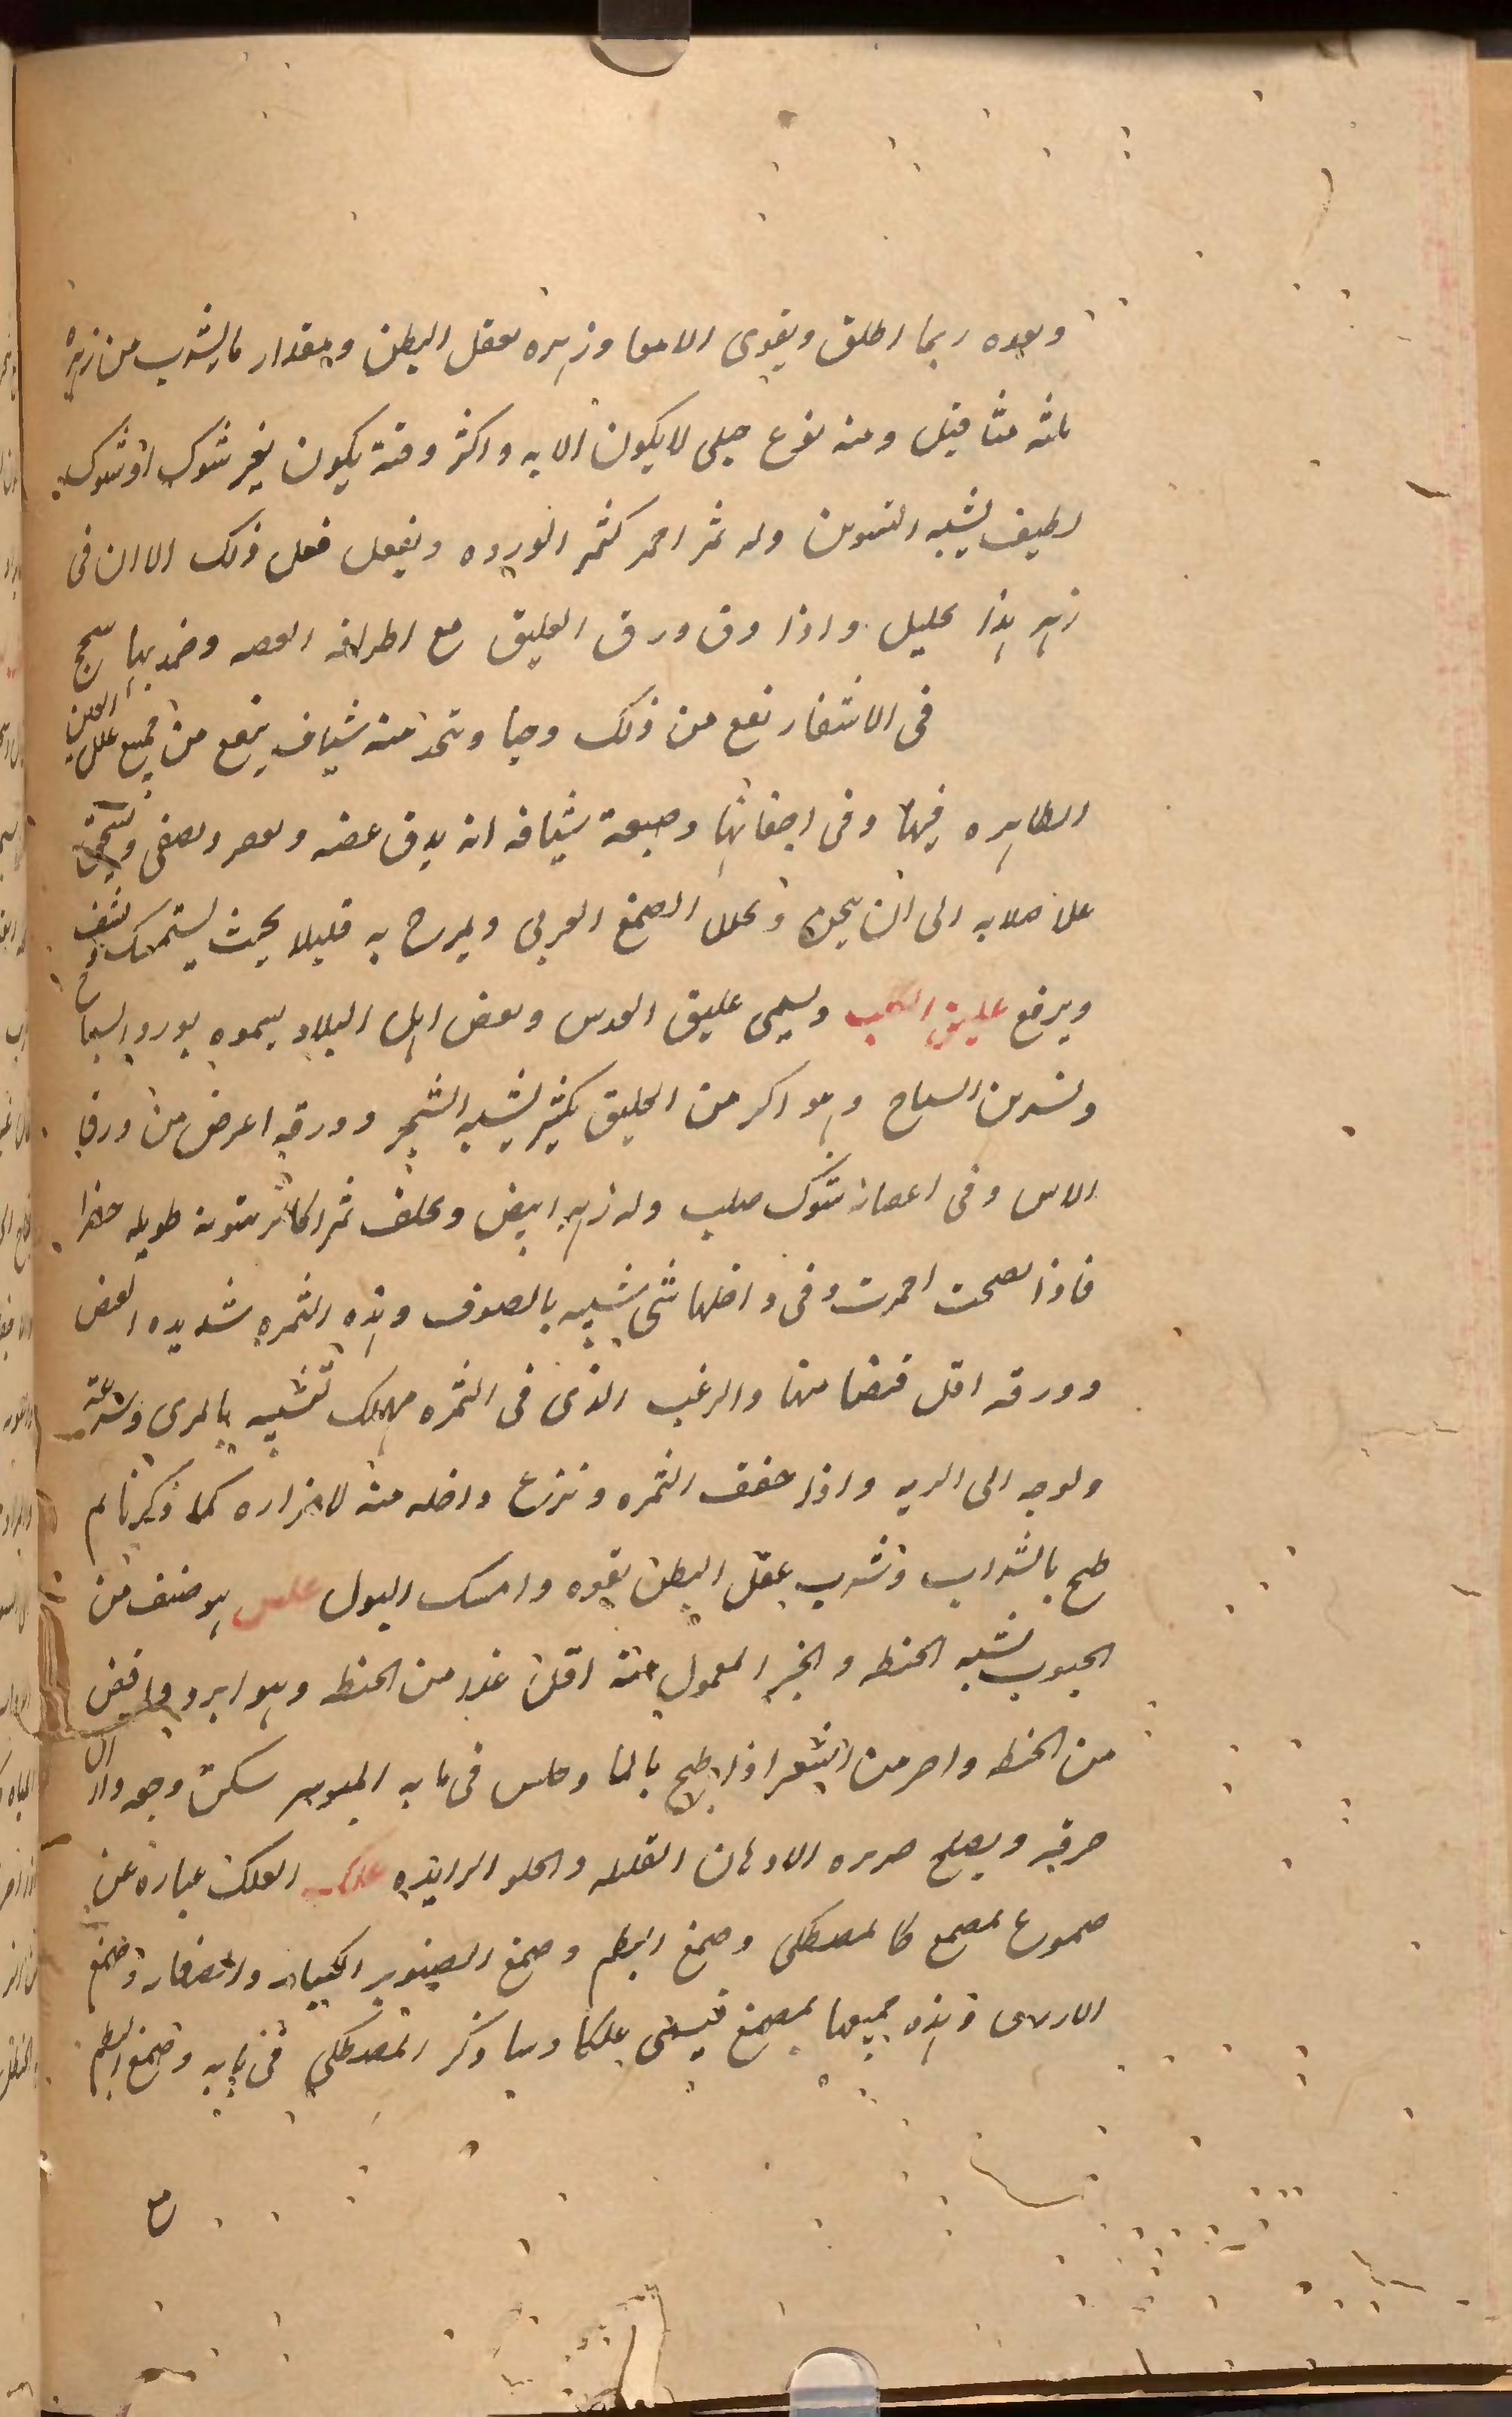 وبعده ربما اطلق ويقوى الامعا وزهره يعقل البطن ومقدار ما يشرب من زهره
ثلثه مثاقيل ومنه نوع جبلى لا يكون الا به واكثر وقته يكون بغير شوك او شوك
لطيف يشبه النسرين وله ثمر احمر كثمر الورده ويفعل فعل ذلك الا ان فى
زهر هذا تحليل واذا دق ورق العليق مع اطرافه الغضه وضمد بها سحج
فى الاشفار نفع من ذلك وحيا ويتخذ منه شياف ينفع من جميع علل العين
الظاهره فيها وفى اجفانها وصنعة شيافه ان يدق غضه ويعصر ويصفى ويسحق
على صلابه الى ان يجف ويحلل الصمغ العربى ويمزج به قليلا بحيث يستمسك ويشيف
ويرفع عليق الكلب ويسمى عليق العدس وبعض اهل البلاد يسموه بورد السياح
ونسرين السياج وهو اكبر من العليق بكثير يشبه الشجر وورقه اعرض من ورق
الاس وفى اغصانه شوك صلب وله زهر ابيض ويخلف ثمرا كالزيتونه طويله خضرا
فاذا نضجت احمرت وفى داخلها شى شبيه بالصوف وهذه الثمره شديده القبض
وورقه اقل قبضا منها والزغب الذى فى الثمره مهلك تشبه بالمرى وسرعته
ولوجه الى الريه واذا جفف الثمره ونزع داخله منه لاضراره كما ذكرنا ثم
طبخ بالشراب وشرب عقل البطن بقوه وامسك البول علس هو صنف من
الحبوب يشبه الحنطه والخبز المعمول منه اقل غذا من الحنطه وهو ابرد واقبض
من الحنطه واحر من الشعير اذا طبخ بالما وجلس فى مايه المبوسر سكن وجعه وان
حرقه ويصلح ضرره الادهان القليله والحلو الزايده علك العلك عباره عن
صموغ تمضغ كالمصطكى وصمغ البطم وصمغ الصنوبر الكبار والصغار وصمغ
الارز وهذه جميعها تمضغ فيسمى علكا وساذكر المصطكى فى بابه وصمغ البطم
مع